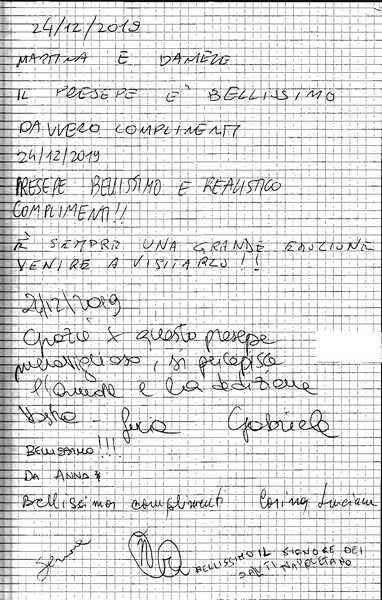 24/12/2019
MARTINA E DANIELE
IL PRESEPE E' BELLISSIMO
DAVVERO COMPLIMENTI
24/12/2019
PRESEPE BELLISSIMO E REALISTICO
COMPLIMENTI!!
È SEMPRE UNA GRANDE EMOZIONE
VENIRE A VISITARLO!!
24/12/2019
Grazie x questo presepe
meraviglioso, si percepisce
l'amore e la dedizione
Vostra - Gabriele
BELLISSIMO!!!
DA ANNA
Bellissimo complimenti Luciana
BELLISSIMO IL SIGNORE DEI
NAPOLETANO